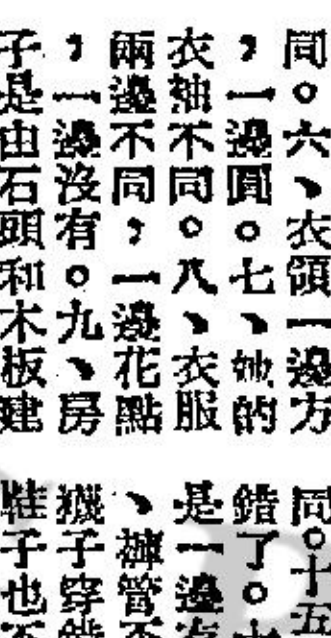 同。六、衣領一邊方
，一邊圓。七、她的
衣袖不同。八、衣服
兩邊不同，一邊花點
，一邊沒有。九、房
子是由石頭和木板建
同。十五
錯了。
是一邊有
、褲管不
子穿錯
鞋子也不